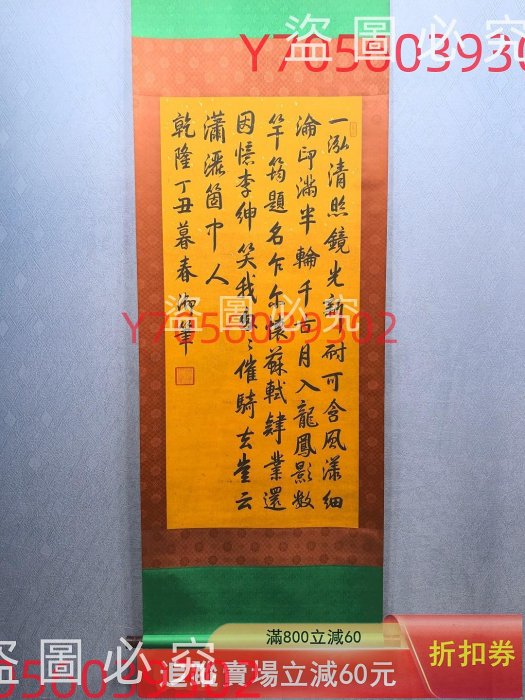 盜圖必究
Y7056039302
一泓清照鏡光新耐可含風漾細
淪印滿半輪千古月入龍鳳影數
竿筠題名乍懷蘇軾肄業還
因憶李紳笑我催騎去豈云
瀟灑箇中人
乾隆丁丑暮春御筆
盜圖必究
Y7056039302
盜圖必究
滿800立減60
追蹤賣場立減60元
折扣券